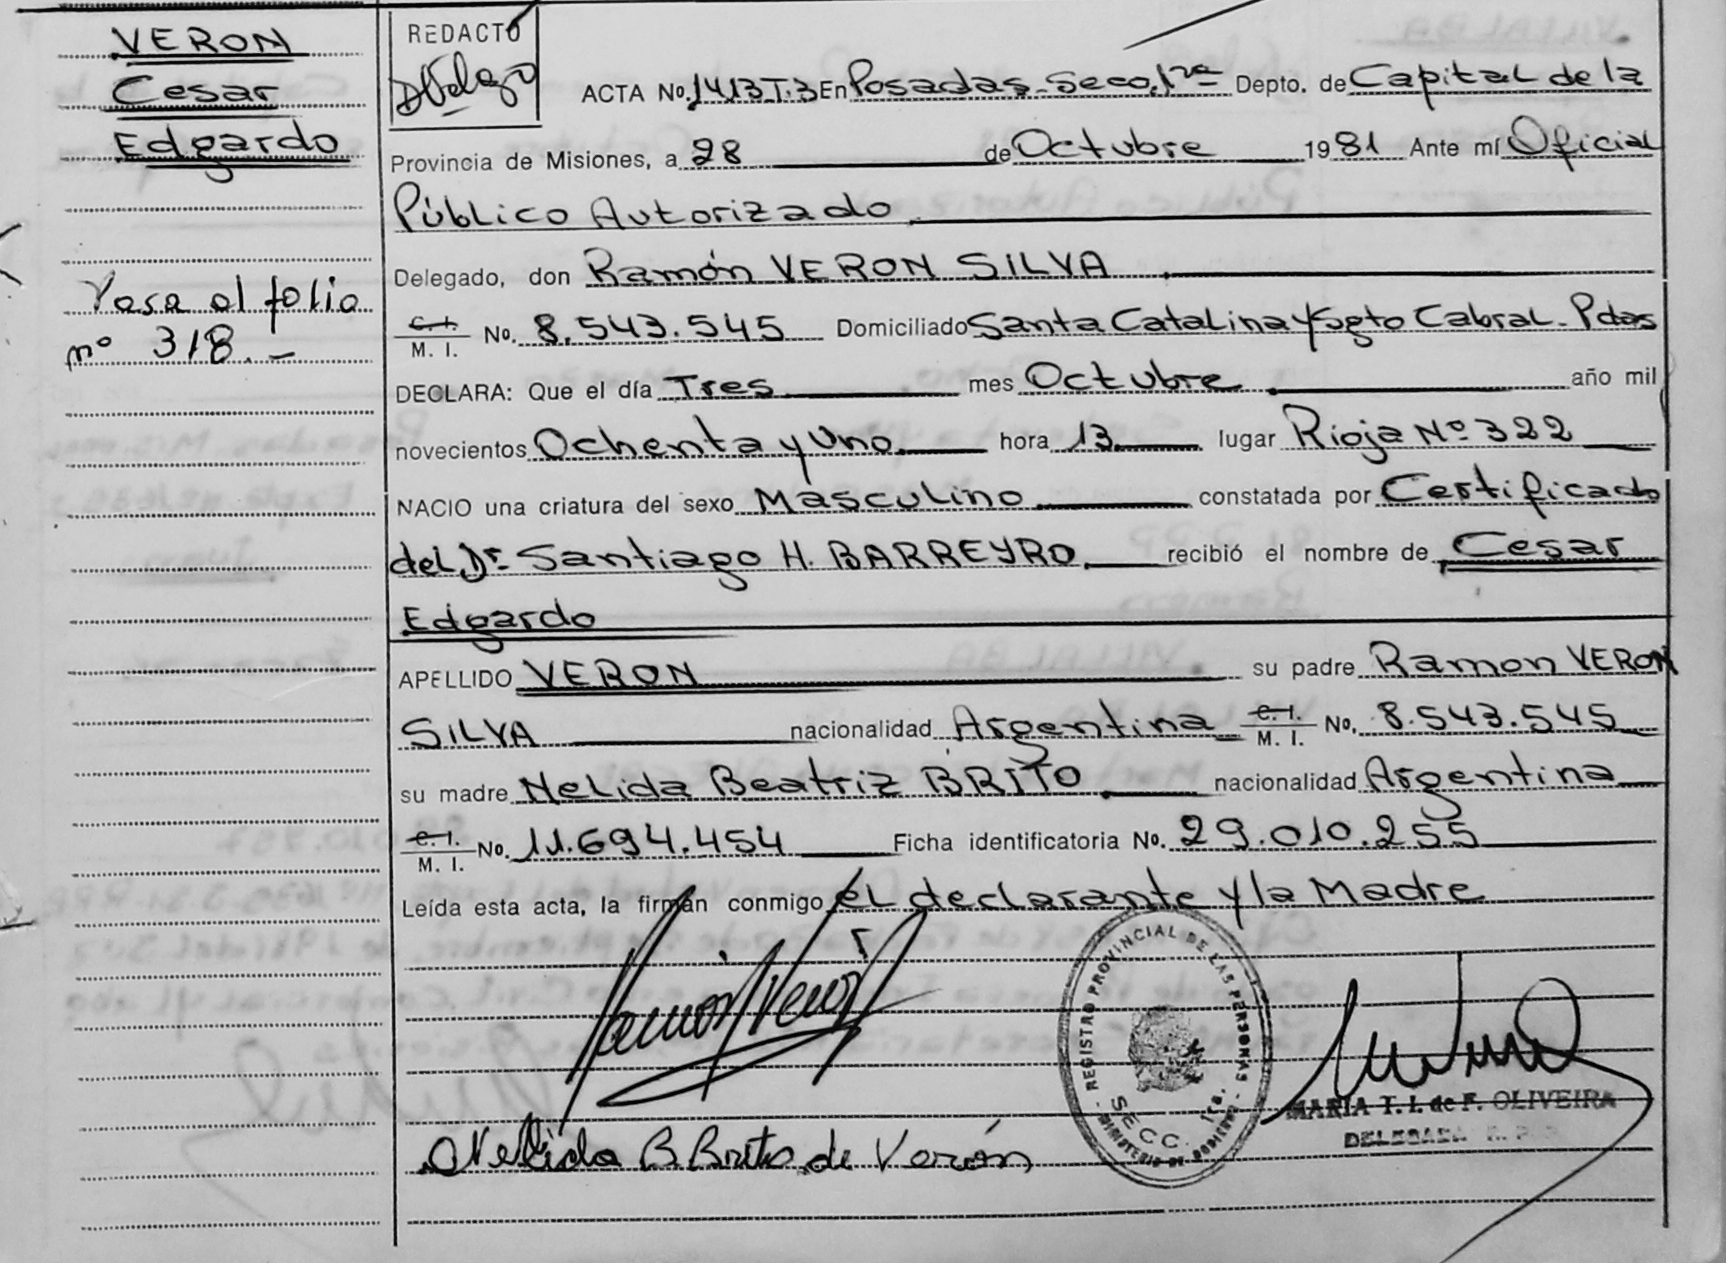 VERON
Cesar
Edgardo
Pasa al folio
nº 318.-
REDACTO
ACTA No. 1413 T.3 En Posadas-Secc. 1ra Depto. de Capital de la
Provincia de Misiones, a 28 de Octubre 1981 Ante mí Oficial
Público Autorizado.
Delegado, don Ramón VERON SILVA.
C. I. / M. I. No. 8.543.545 Domiciliado Santa Catalina y Sgto Cabral. Pdas
DECLARA: Que el día Tres mes Octubre. año mil
novecientos Ochenta y Uno. hora 13. lugar Rioja Nº 322
NACIO una criatura del sexo Masculino constatada por Certificado
del Dr. Santiago H. BARREYRO. recibió el nombre de Cesar
Edgardo
APELLIDO VERON su padre Ramon VERON
SILVA nacionalidad Argentina C. I. / M. I. No. 8.543.545
su madre Nelida Beatriz BRITO. nacionalidad Argentina
C. I. / M. I. No. 11.694.454 Ficha identificatoria No. 29.010.255
Leída esta acta, la firman conmigo el declarante y la Madre
Ramón Verón
REGISTRO PROVINCIAL DE LAS PERSONAS
SECC. 1ra.
MINISTERIO DE GOBIERNO
MARIA T. I. de F. OLIVEIRA
DELEGADA
Nelida B Brito de Verón